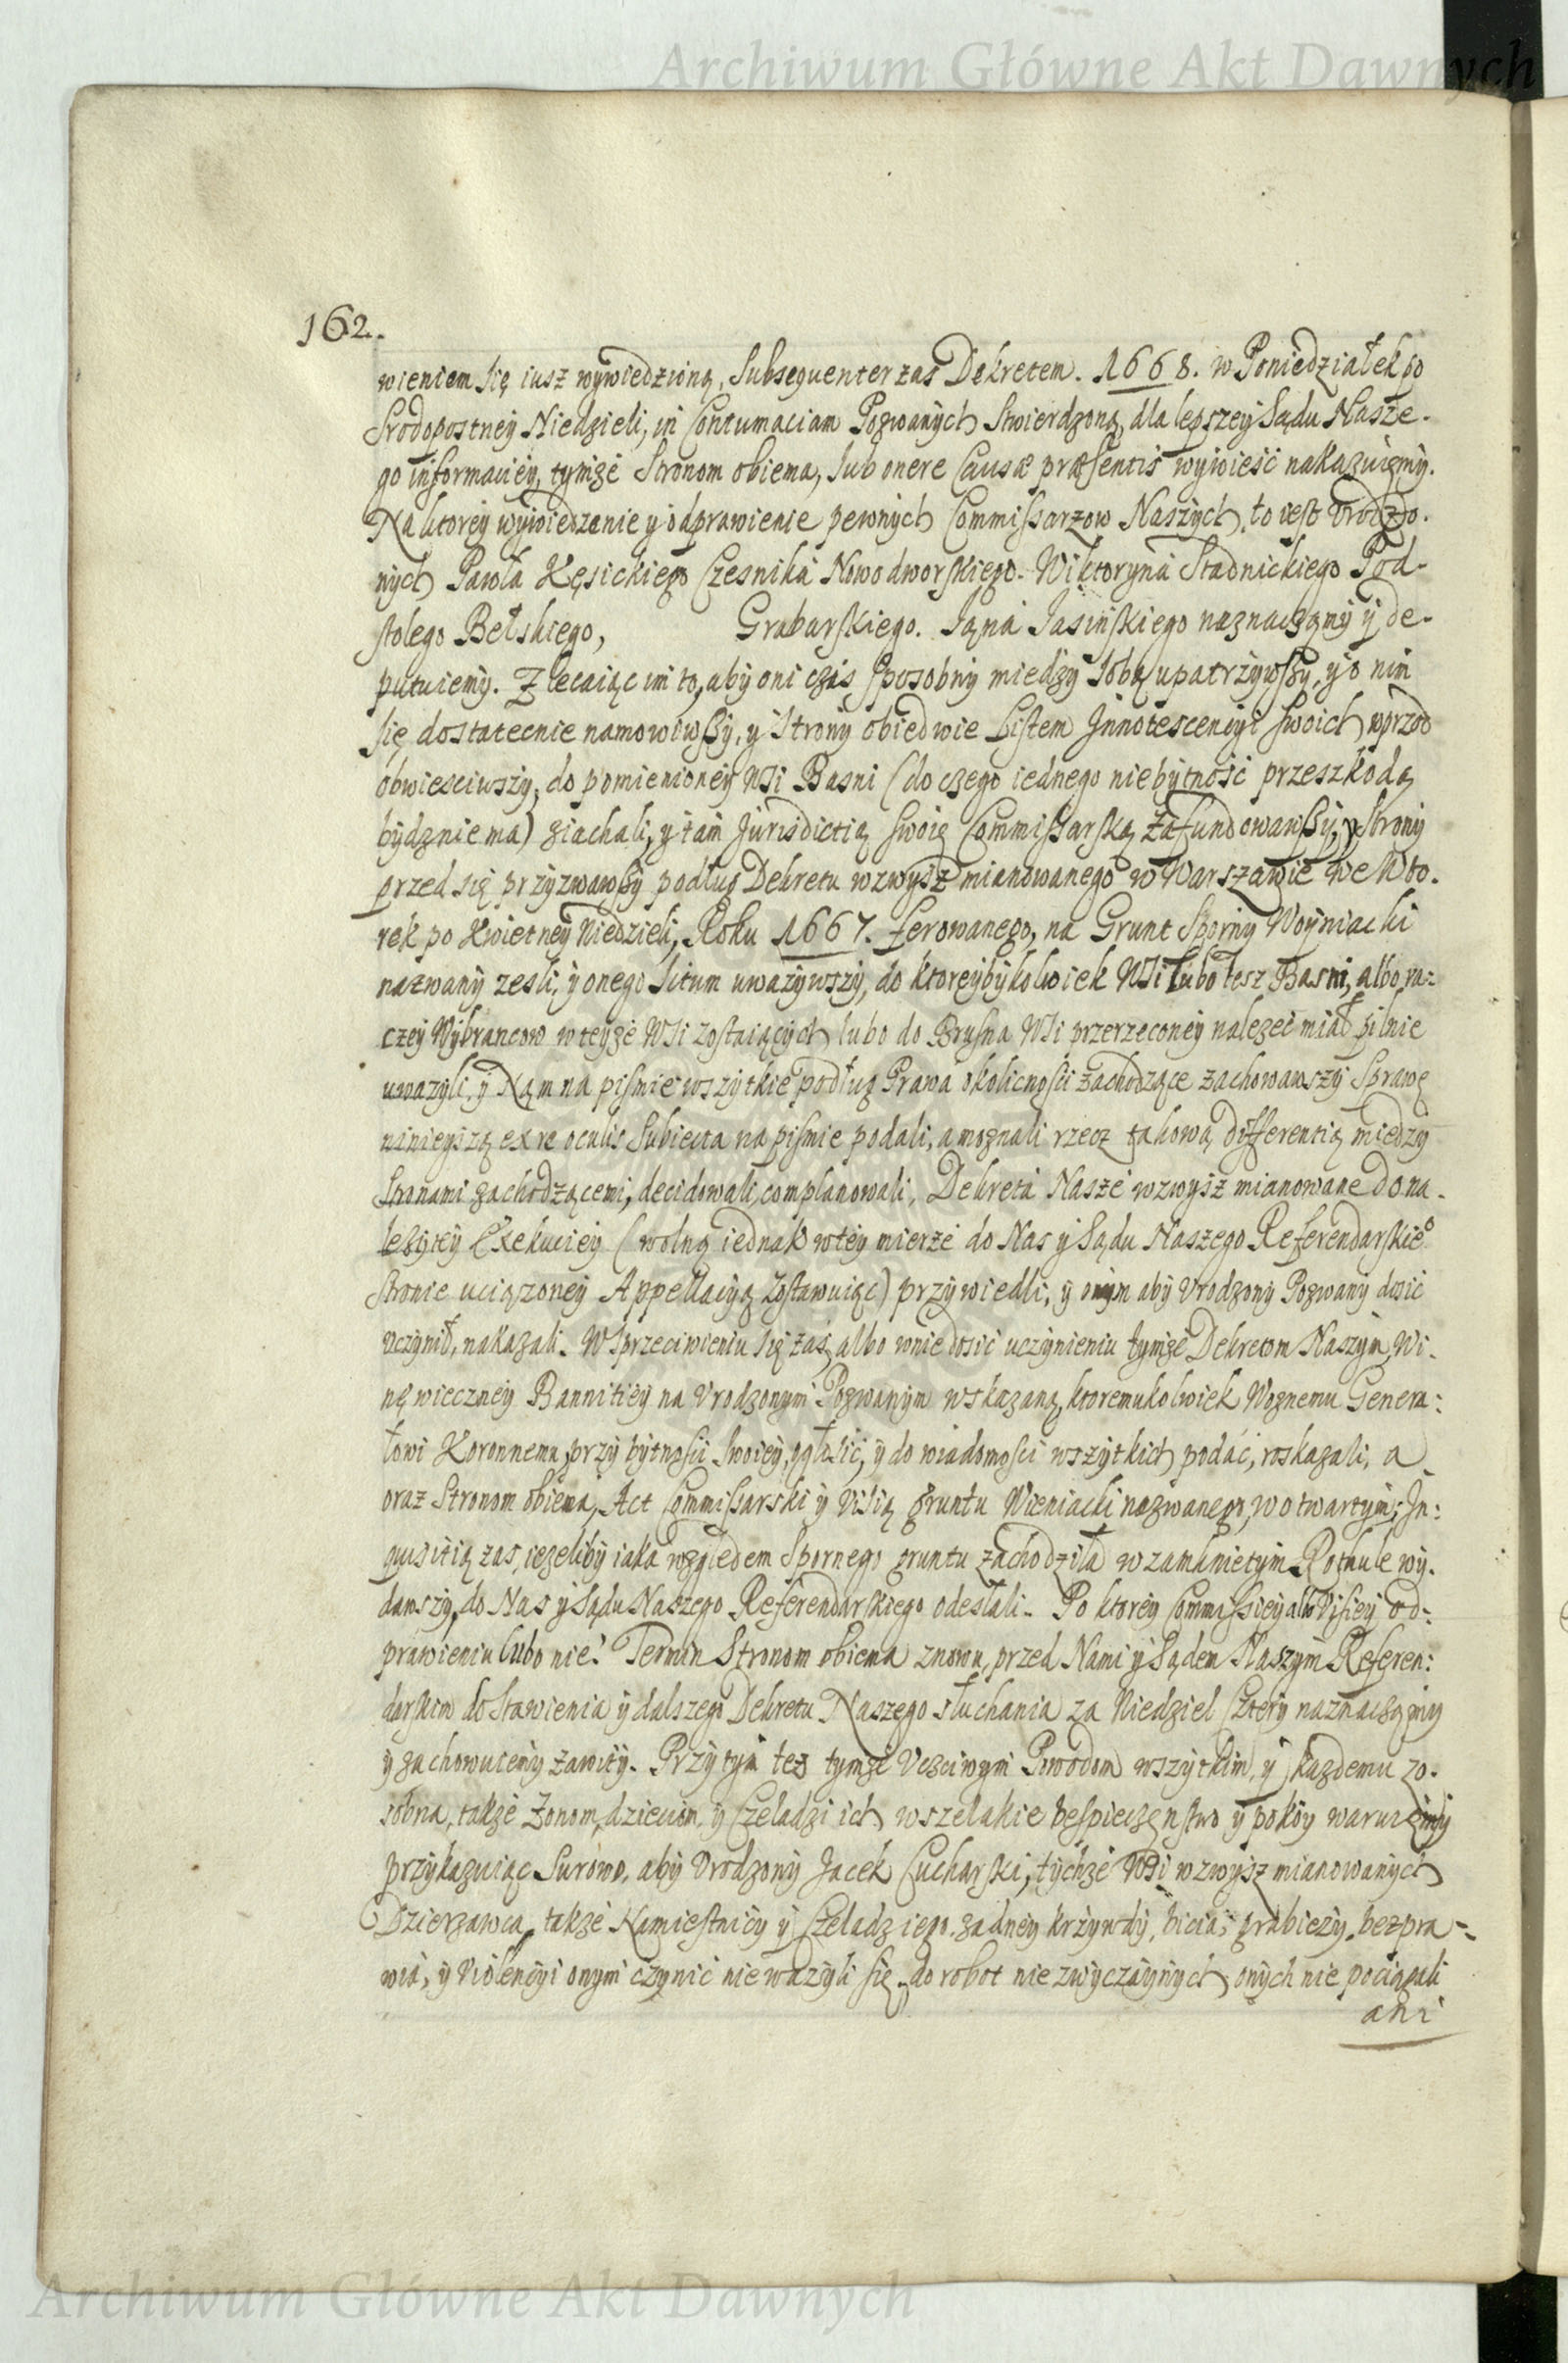 Archiwum Główne Akt Dawnych
162.
wieniem się iusz wywiedzioną, Subsequenter zas Dekretem. 1668. w Poniedziałek po
Srodopostney Niedzieli, in Contumaciam Pozwanych Stwierdzoną, dla lepszey Sądu Nasze-
go informaciey, tymze Stronom obiema, sub onere Causæ præsentis wywiesć nakazuiemy.
Na ktorey wywiedzenie y odprawienie pewnych Commissarzow Naszych, to iest Vrodzo.
nych Pawła Kęsickiego Czesnika Nowodworskiego. Wiktoryna Stadnickiego Pod-
stolego Bełskiego, Grabarskiego. Iana Iasinskiego naznaczamy y de-
putuiemy. Zlecaiąc im to, aby oni czas sposobny miedzy sobą upatrzywszy, y o nim
się dostatecnie namowiwszy, y Strony obiedwie Listem Innotescencyi swoich wprzod
obwiesciwszy, do pomienioney Wsi Basni (do czego iednego niebytność przeszkodą
bydz nie ma) ziachali, y tam Jurisdictią swoię Commissarską zafundowawszy, y Strony
przed się przyzwawszy podług Dekretu wzwysz mianowanego w Warszawie we Wto.
rek po Kwietney Niedzieli, Roku 1667. ferowanego, na Grunt Sporny Woyniacki
nazwany zesli, y onego situm uwazywszy, do ktoreybykolwiek Wsi lubo tesz Basni, albo ra:
czey Wybrancow w teyze Wsi zostaiących lubo do Brusna Wsi przerzeconey nalezeć miał pilnie
uwazyli, y Nam na pismie wszytkie podług Prawa okolicnosci zachodzące zachowawszy Sprawę
ninieyszą ex re oculis subiecta na pismie podali, a moznali rzecz takową differentią miedzy
Stronami zachodzącemi, decidowali, complanowali, Dekreta Nasze wzwysz mianowane do na-
lezytey Exekuciey (wolną iednak w tey mierze do Nas y Sądu Naszego Referendarskieo
stronie uciązoney Appellacyą zostawuiąc) przywiedli, y onym aby Vrodzony Pozwany dosić
uczynił, nakazali. W sprzeciwieniu się zas, albo w niedosić uczynieniu tymze Dekretom Naszym, Wi-
nę wieczney Bannitiey na Vrodzonym Pozwanym wskazaną, ktoremukolwiek Woznemu Genera:
łowi Koronnemu, przy bytnosci swoiey, ogłosić, y do wiadomosci wszytkich podać, roskazali, a
oraz Stronom obiema, Act Commissarski y Visią gruntu Wieniacki nazwanego, w otwartym; In:
quisitią zas, iezeliby iaka względem Spornego gruntu zachodziła w zamknietym Rotule wy.
dawszy, do Nas y Sądu Naszego Referendarskiego odesłali. Po ktorey Commissiey albo Visiey od-
prawieniu lubo nie: Termin Stronom obiema znowu, przed Nami y Sądem Naszym Referen:
darskim do Stawienia y dalszego Dekretu Naszego słuchania za Niedziel Cztery naznaczamy
y zachowuiemy zawity. Przy tym tez tymze Ucsciwym Powodom wszytkim, y kazdemu zo-
sobna, takze Zonom, dzieciom, y Czeladzi ich wszelakie bespieczęnstwo y pokoy waruiemy
przykazuiąc Surowo, aby Vrodzony Jacek Cucharski, tychze Wsi wzwysz mianowanych
Dzierzawca, takze Namiestnicy y Czeladz iego. zadney krzywdy, bicia, grabiezy, bezpra-
wia, y Violencyi onym czynić niewazyli się, do robot niezwyczaynych onych nie pociągali
ani
Archiwum Główne Akt Dawnych